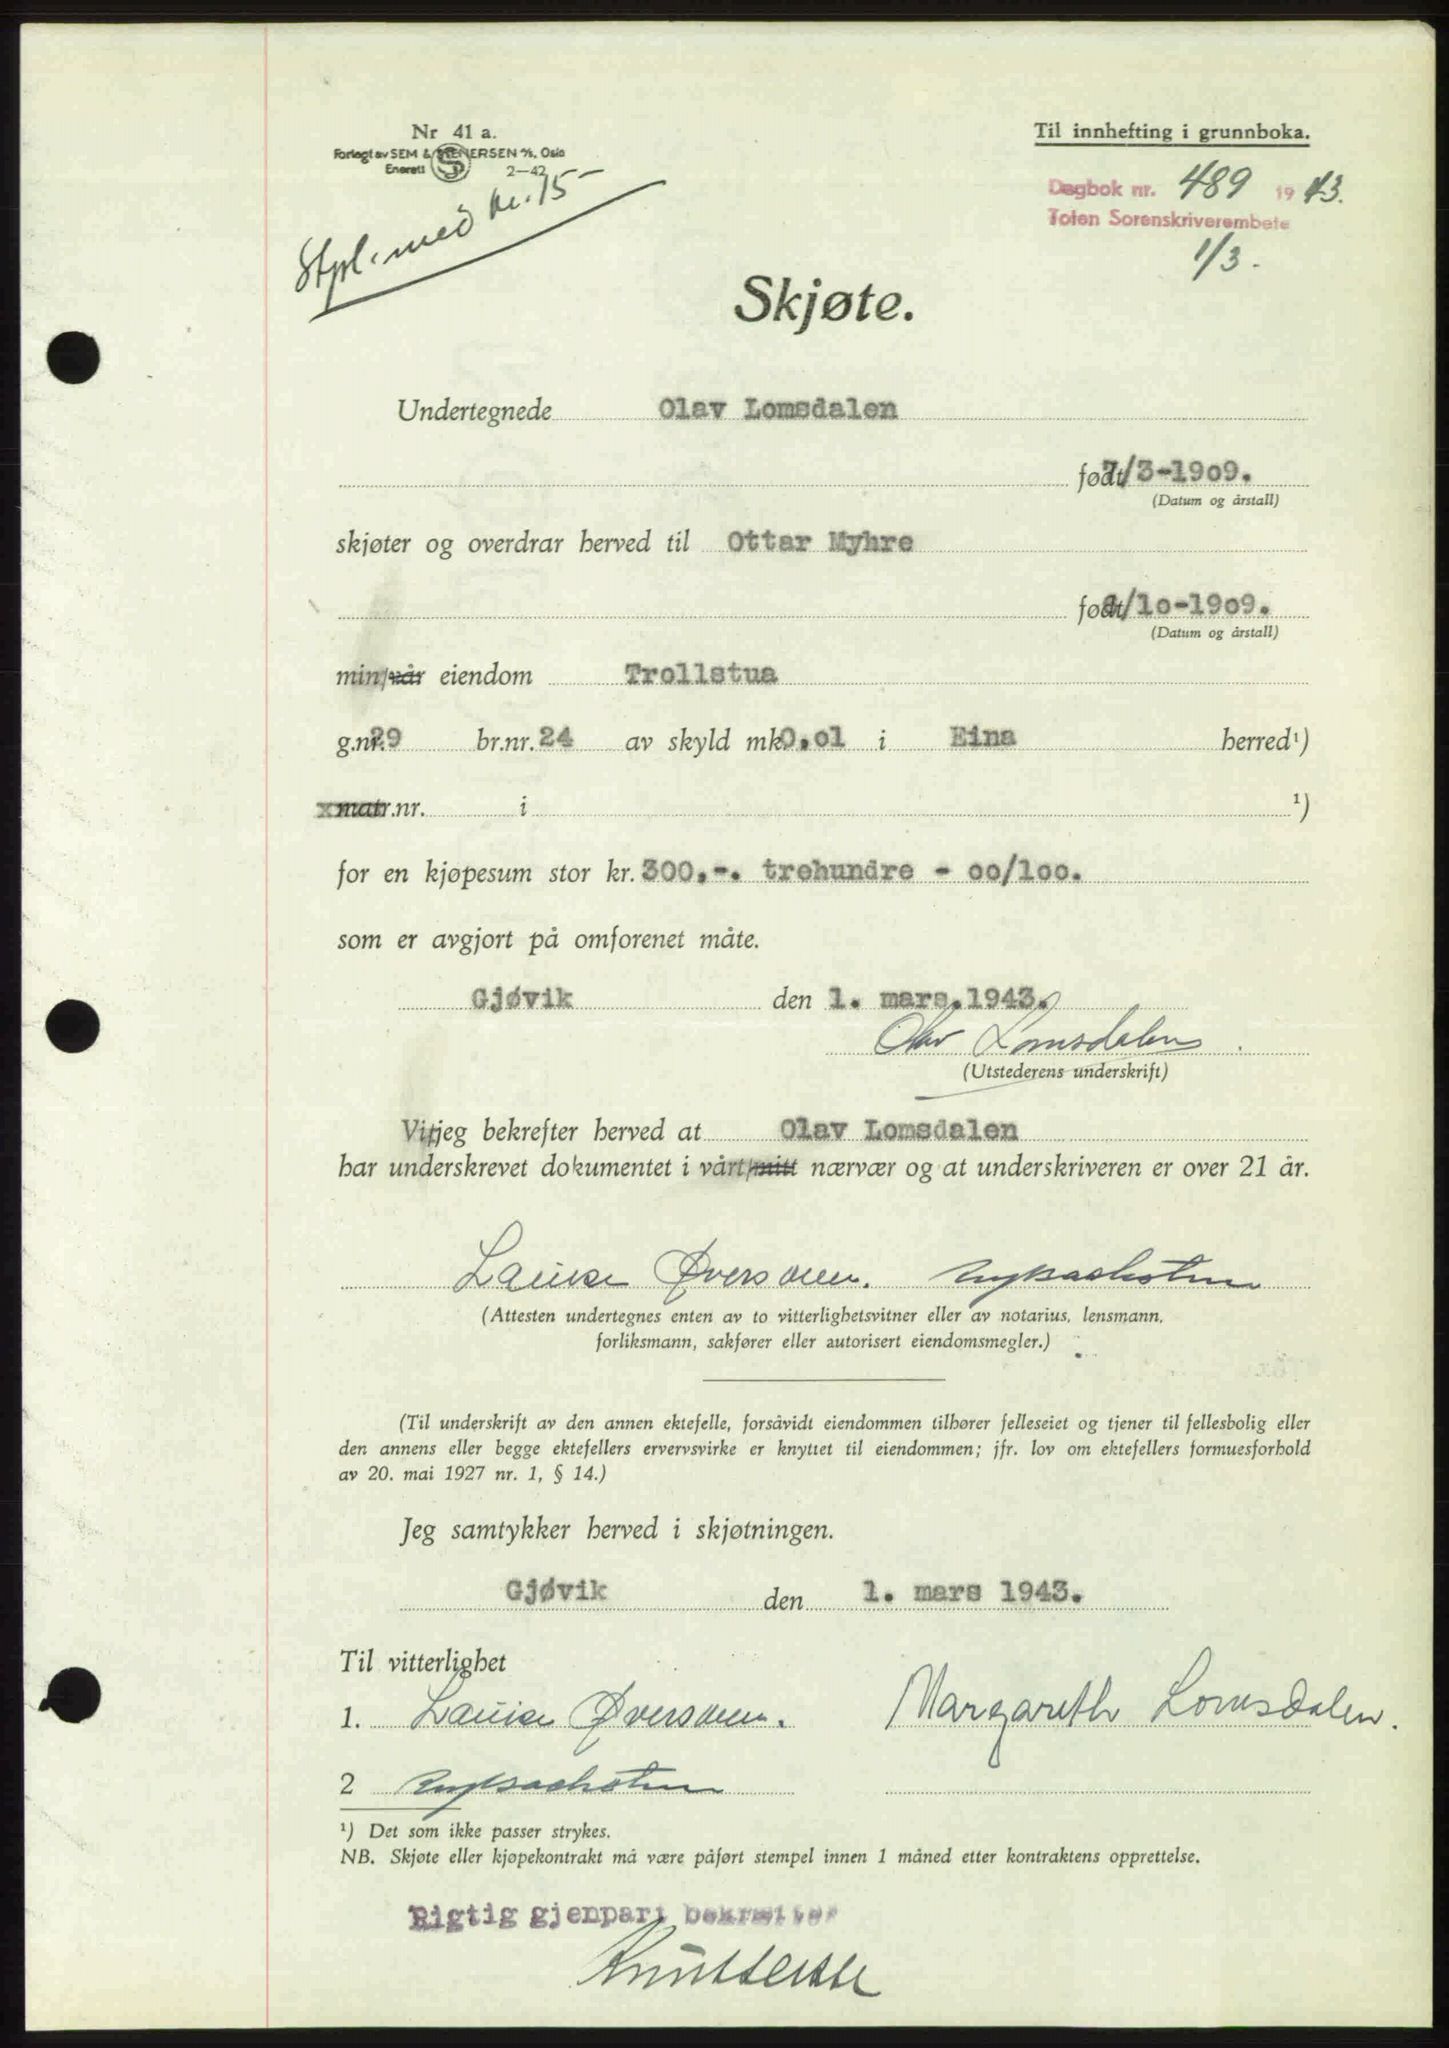 Nr 41 a.
Forlagt av SEM & STENERSEN A/S, Oslo
Enerett 2-42
Stpl. med kr. 15-
Til innhefting i grunnboka.
Dagbok nr. 489 1943.
Toten Sorenskriverembete
1/3.
Skjøte.
Undertegnede Olav Lomsdalen
født 7/3-1909.
(Datum og årstall)
skjøter og overdrar herved til Ottar Myhre
født /10-1909.
(Datum og årstall)
min/vår eiendom Trollstua
g.nr. 29 br.nr. 24 av skyld mk. 0,01 i Eina herred¹)
matr.nr. i ¹)
for en kjøpesum stor kr. 300.-. trehundre - oo/1oo.
som er avgjort på omforenet måte.
Gjøvik den 1. mars.1943.
Olav Lomsdalen
(Utstederens underskrift)
Vi/jeg bekrefter herved at Olav Lomsdalen
har underskrevet dokumentet i vårt/mitt nærvær og at underskriveren er over 21 år.
(Attesten undertegnes enten av to vitterlighetsvitner eller av notarius, lensmann,
forliksmann, sakfører eller autorisert eiendomsmegler.)
(Til underskrift av den annen ektefelle, forsåvidt eiendommen tilhører felleseiet og tjener til fellesbolig eller
den annens eller begge ektefellers ervervsvirke er knyttet til eiendommen; jfr. lov om ektefellers formuesforhold
av 20. mai 1927 nr. 1, § 14.)
Jeg samtykker herved i skjøtningen.
Gjøvik den 1. mars 1943.
Til vitterlighet
1. Margareth Lomsdalen.
2
¹) Det som ikke passer strykes.
NB. Skjøte eller kjøpekontrakt må være påført stempel innen 1 måned etter kontraktens opprettelse.
Rigtig gjenpart bekræftes